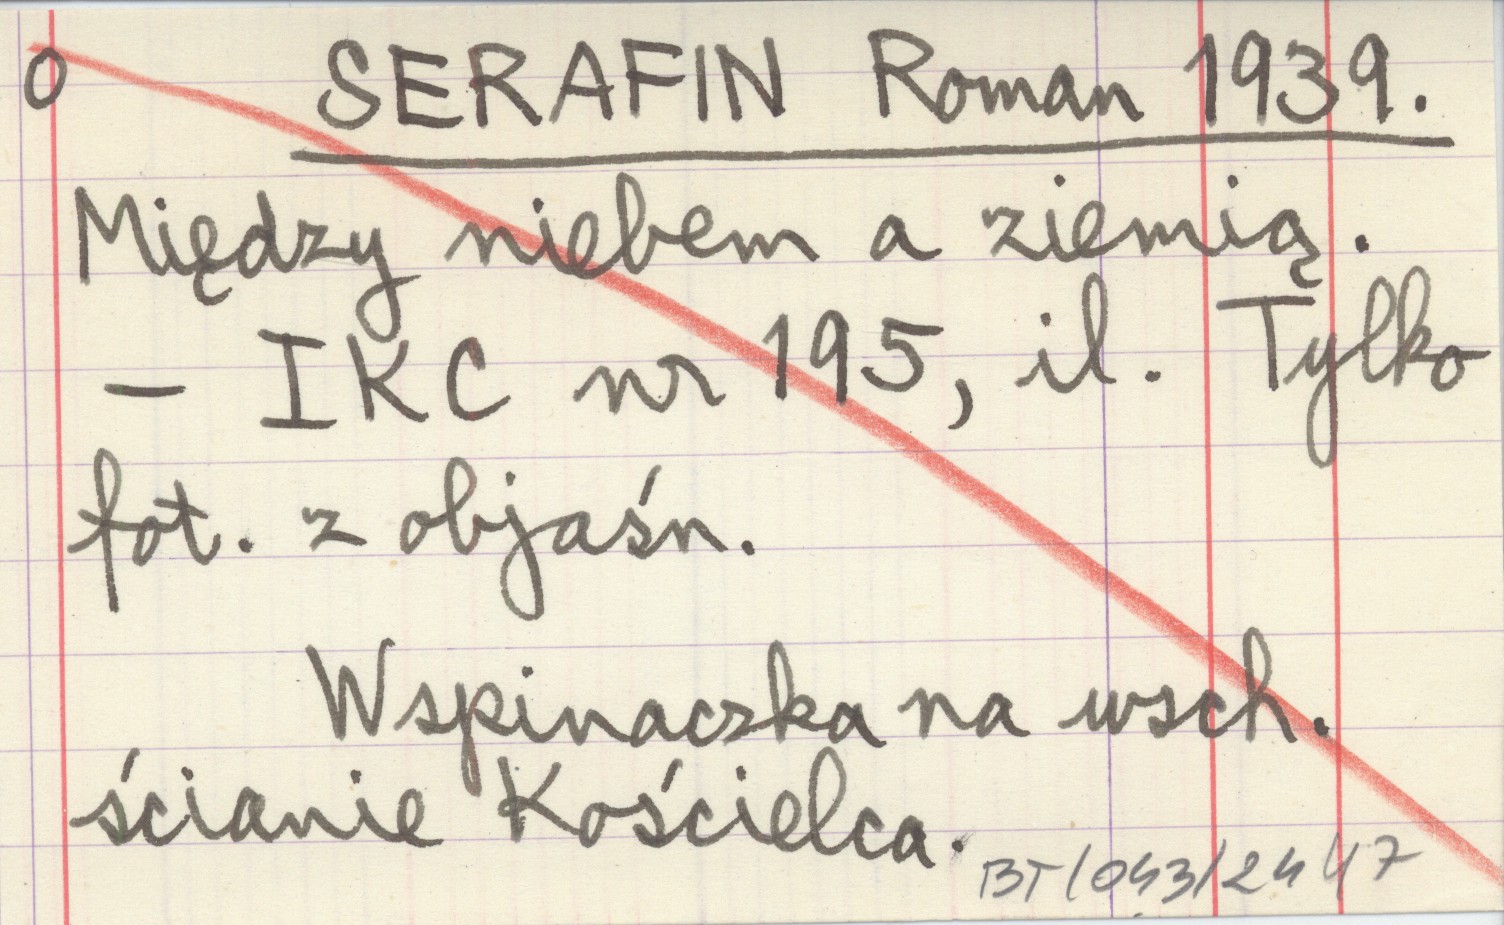 0 SERAFIN Roman 1939.
Między niebem a ziemią.
– IKC nr 195, il. Tylko
fot. z objaśn.
Wspinaczka na wsch.
ścianie Kościelca.
BT/043/2447